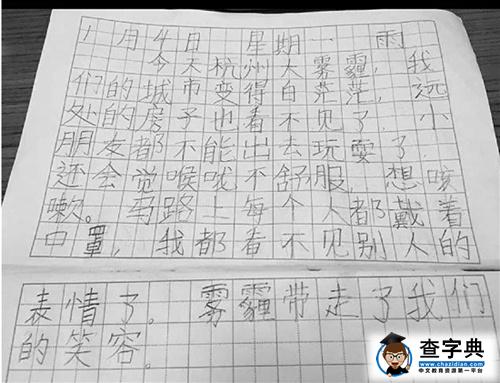 1月4日 星期一 雨
今天杭州大雾霾,我
们的城市变得白茫茫,远
处的房子也看不见了.小
朋友都不能出去玩耍了.
还会觉喉咙不舒服,想咳
嗽。马路上每个人都戴着
口罩,我都看不见别人的
表情了。雾霾带走了我们
的笑容。
查字典
www.chazidian.com
中文教育资源第一平台